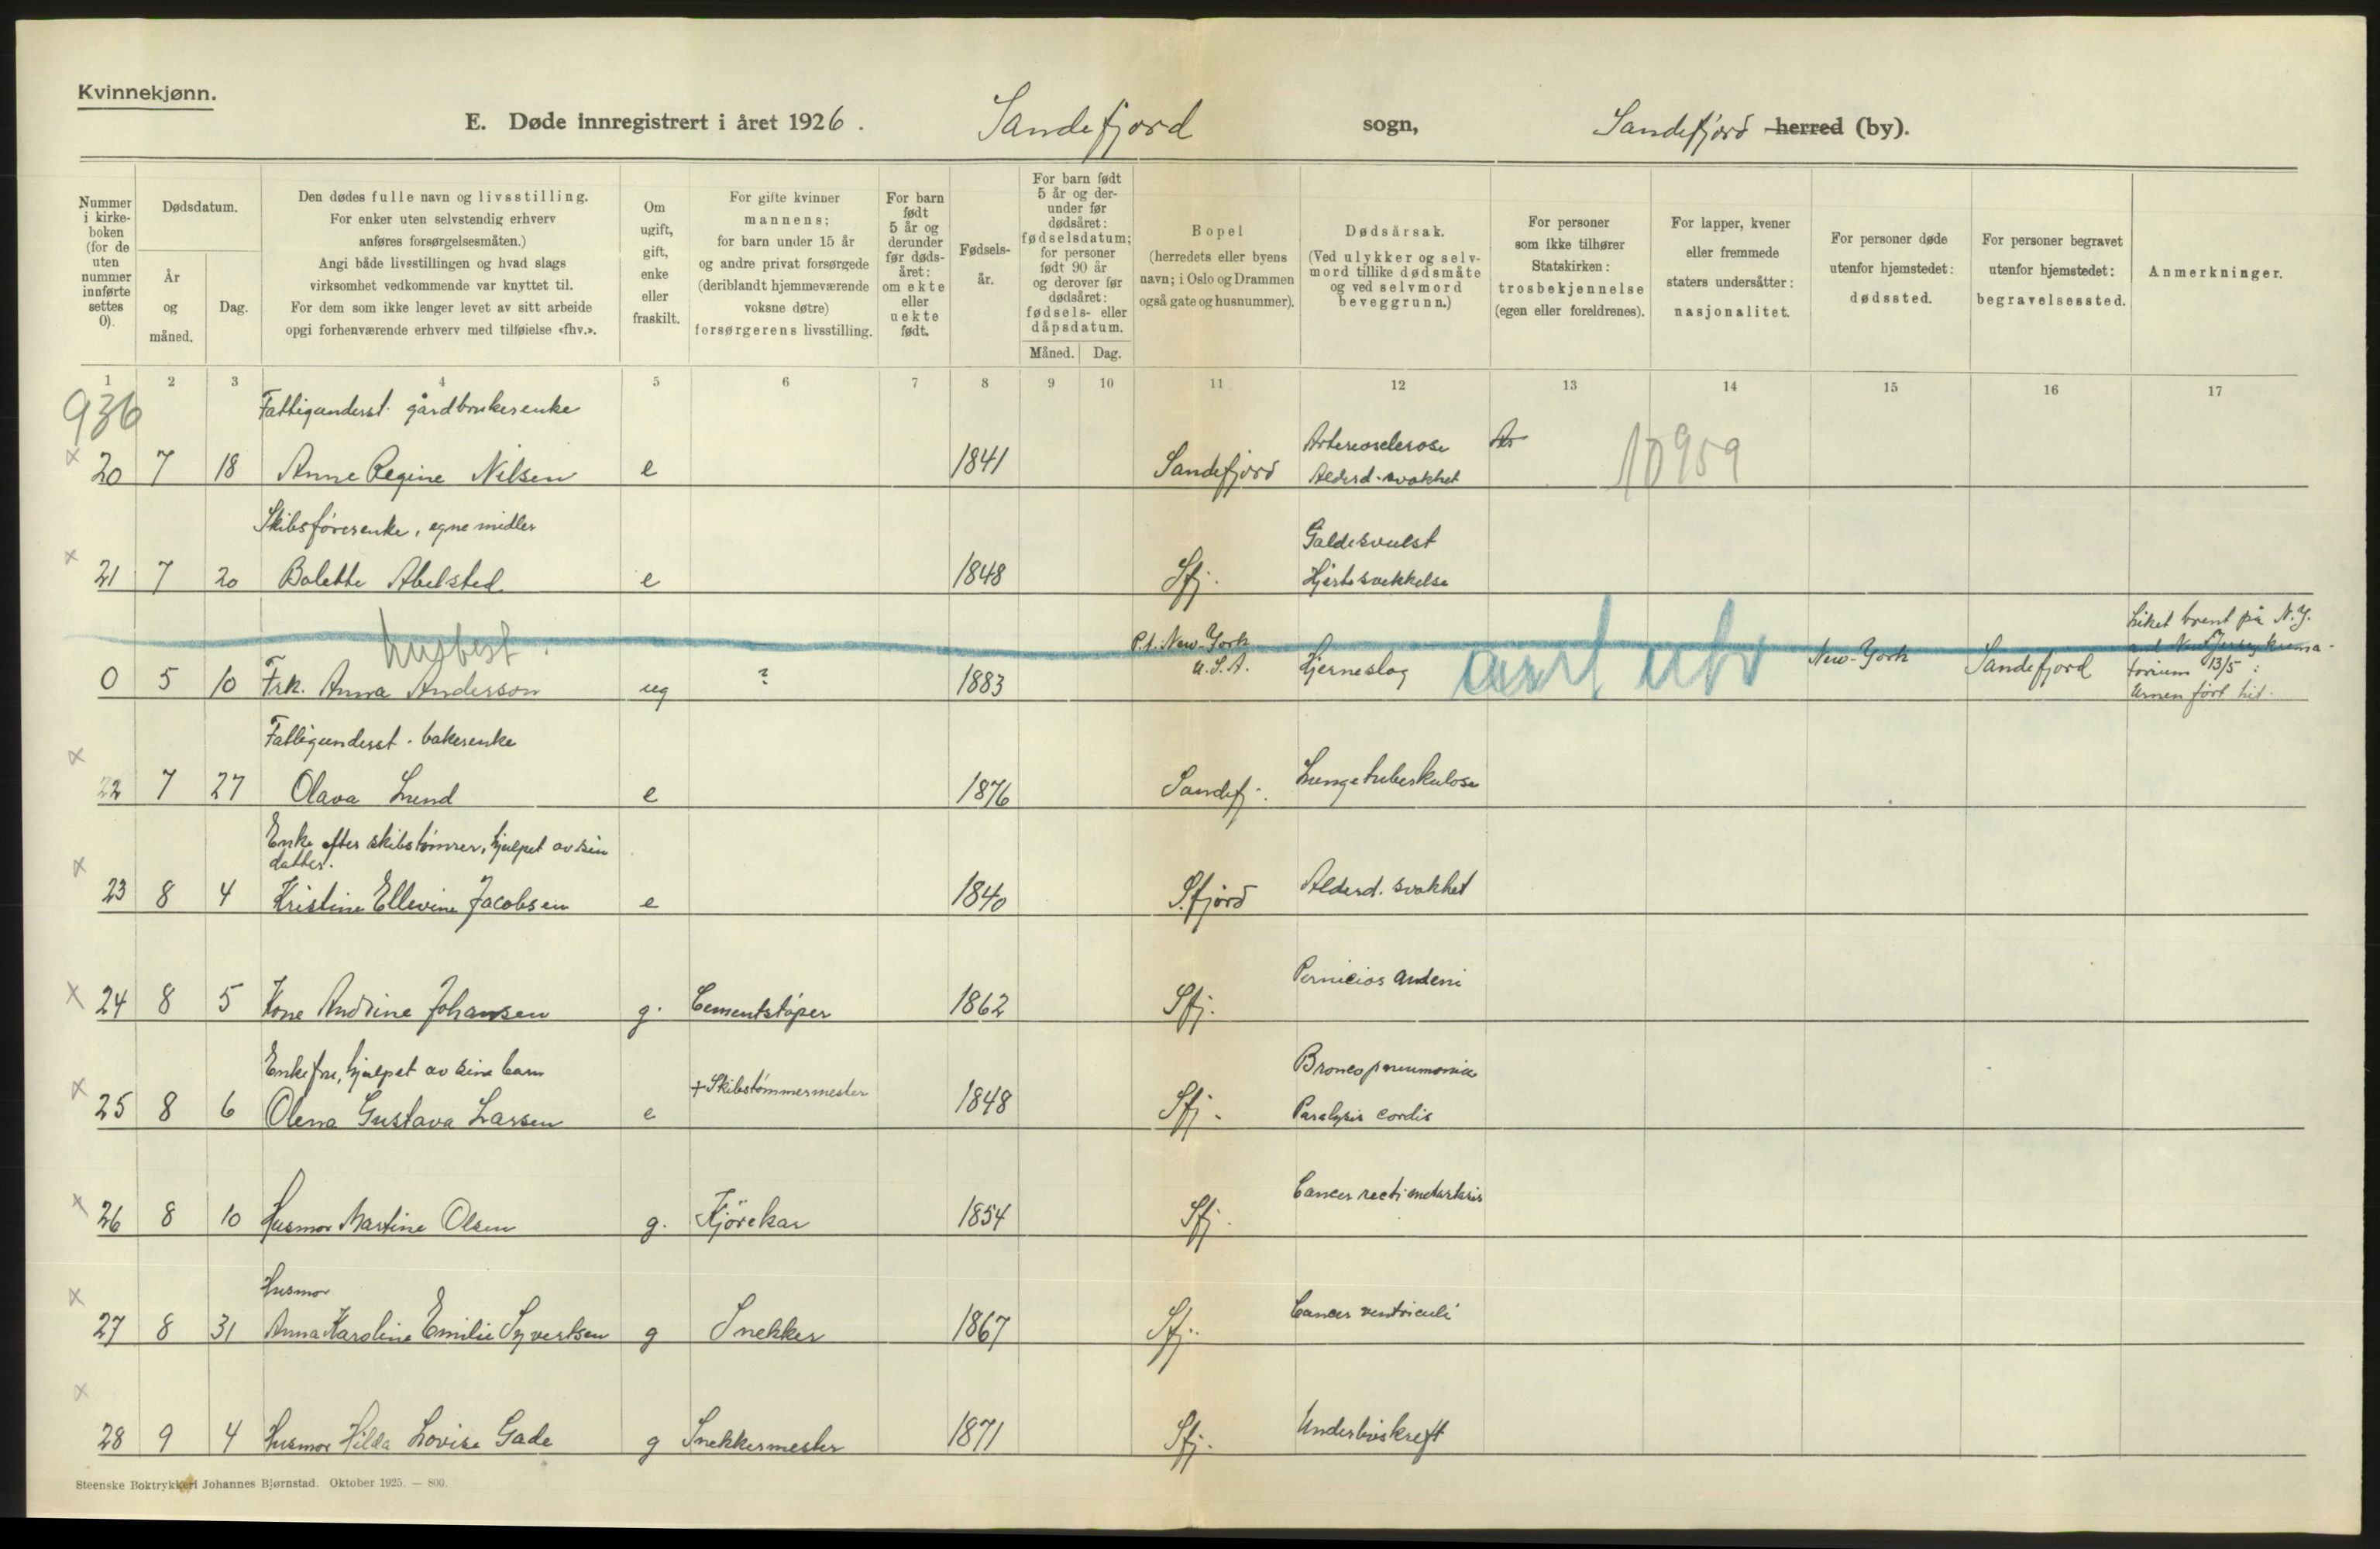 Kvinnekjønn.
E. Døde innregistrert i året 1926. Sandefjord sogn, Sandefjord herred (by).
Nummer i kirkeboken (for de uten nummer innførte settes 0).
Dødsdatum.
År og måned.
Dag.
Den dødes fulle navn og livsstilling.
For enker uten selvstendig erhverv
anføres forsørgelsesmåten.)
Angi både livsstillingen og hvad slags
virksomhet vedkommende var knyttet til.
For dem som ikke lenger levet av sitt arbeide
opgi forhenværende erhverv med tilføielse «fhv.».
Om ugift, gift, enke eller fraskilt.
For gifte kvinner
mannens;
for barn under 15 år
og andre privat forsørgede
(deriblandt hjemmeværende
voksne døtre)
forsørgerens livsstilling.
For barn født 5 år og derunder før dødsåret: om ekte eller uekte født.
Fødselsår.
For barn født 5 år og derunder før dødsåret: fødselsdatum; for personer født 90 år og derover før dødsåret: fødsels- eller dåpsdatum.
Måned. Dag.
Bopel
(herredets eller byens
navn; i Oslo og Drammen
også gate og husnummer).
Dødsårsak.
(Ved ulykker og selv-
mord tillike dødsmåte
og ved selvmord
beveggrunn.)
For personer
som ikke tilhører
Statskirken:
trosbekjennelse
(egen eller foreldrenes).
For lapper, kvener
eller fremmede
staters undersåtter:
nasjonalitet.
For personer døde
utenfor hjemstedet:
dødssted.
For personer begravet
utenfor hjemstedet:
begravelsessted.
Anmerkninger.
1 2 3 4 5 6 7 8 9 10 11 12 13 14 15 16 17
936
Fattigunderst. gårdbrukerenke
x 20 7 18 Anne Regine Nilsen e 1841 Sandefjord Arteriosclerose Alderd.svakhet 10959
Skibsførerenke, egne midler
x 21 7 20 Bolette Abelsted e 1848 Sfj. Galdesvulst Hjertesvekkelse
husbest.
0 5 10 Frk. Anna Anderson ug ? 1883 P.t. New-York U.S.A. Hjerneslag New-York Sandefjord
Liket brent på N.Y.
and New Jersey krema-
torium 13/5:
Urnen ført hit.
Fattigunderst. bakerenke
x 22 7 27 Olava Lund e 1876 Sandefj. Lungetuberkulose
Enke efter skibstømrer, hjulpet av sin
datter.
x 23 8 4 Kristine Ellevine Jacobsen e 1840 S.fjord Alderd. svakhet
x 24 8 5 Kone Andrine Johansen g. Cementstøper 1862 Sfj. Pernicios
Enkefru, hjulpet av sine barn
x 25 8 6 Olena Gustava Larsen e +Skibstømmermester 1848 Sfj. Broncopneumonia Paralysis cordis
x 26 8 10 Husmor Martine Olsen g. Kjørekar 1854 Sfj. Cancer recti metastasis
Husmor
x 27 8 31 Anna Karoline Emilie Syvertsen g Snekker 1867 Sfj. Cancer ventriculi
x 28 9 4 Husmor Hilda Lovise Gade g Snekkermester 1871 Sfj. Underlivskreft
Steenske Boktrykkeri Johannes Bjørnstad. Oktober 1925. — 800.